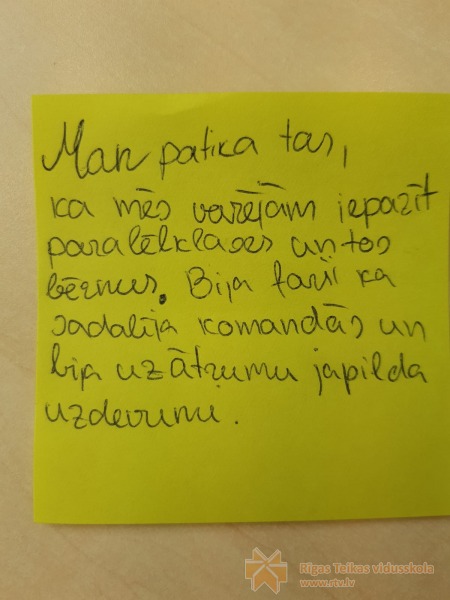 Man patika tas,
ka mēs varējām iepazīt
paralēlklases un tos
bērnus. Bija forši ka
sadalīja komandās un
bija uz ātrumu japilda
uzdevumu.
Rīgas Teikas vidusskola
www.rtv.lv